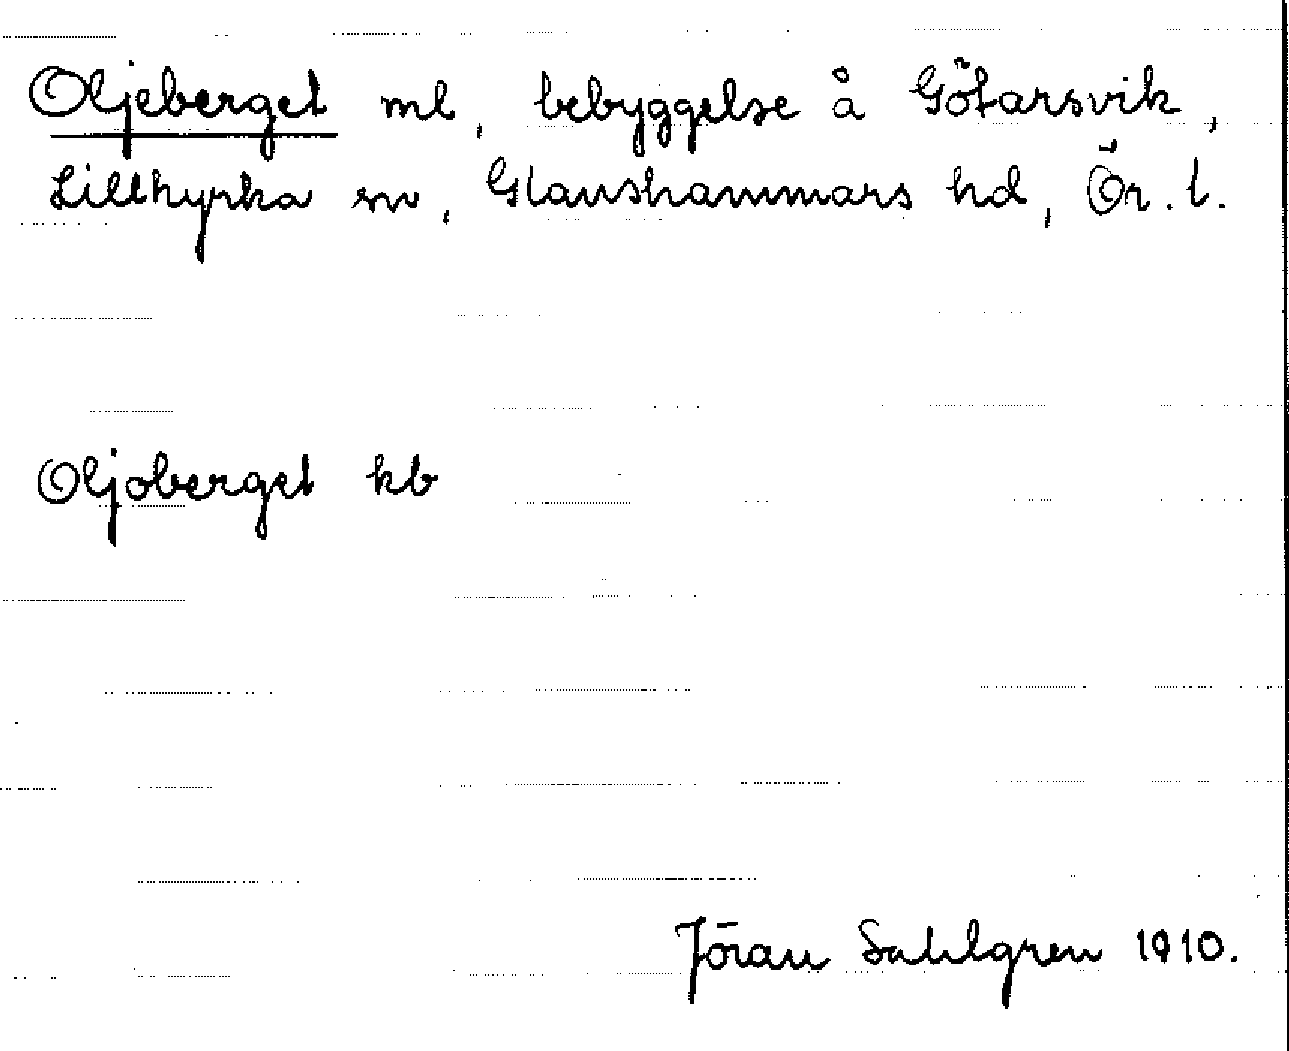 Oljeberget ml, bebyggelse å Götarsvik,
Lillkyrka sn, Glanshammars hd, Ör. l.
Oljoberget kb
Jöran Sahlgren 1910.